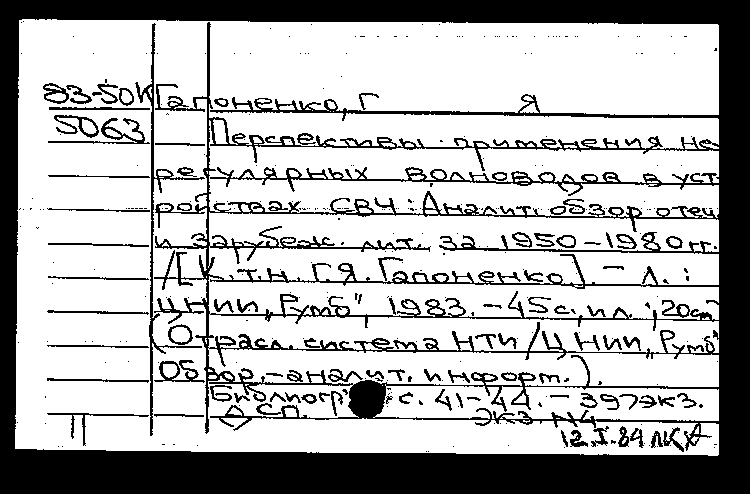 83-50К Гапоненко, Г Я
5063 Перспективы применения не-
регулярных волноводов в уст-
ройствах СВЧ: Аналит. обзор отеч.
и зарубеж. лит. за 1950-1980 гг.
/[К.т.н. Г.Я. Гапоненко]. - Л.:
ЦНИИ „Румб", 1983. - 45 с., ил.; 20 см
(Отрасл. система НТИ/ЦНИИ „Румб"
Обзор.-аналит. информ.).
Библиогр с. 41-44. - 397 экз.
СП. экз N4
12.I.84